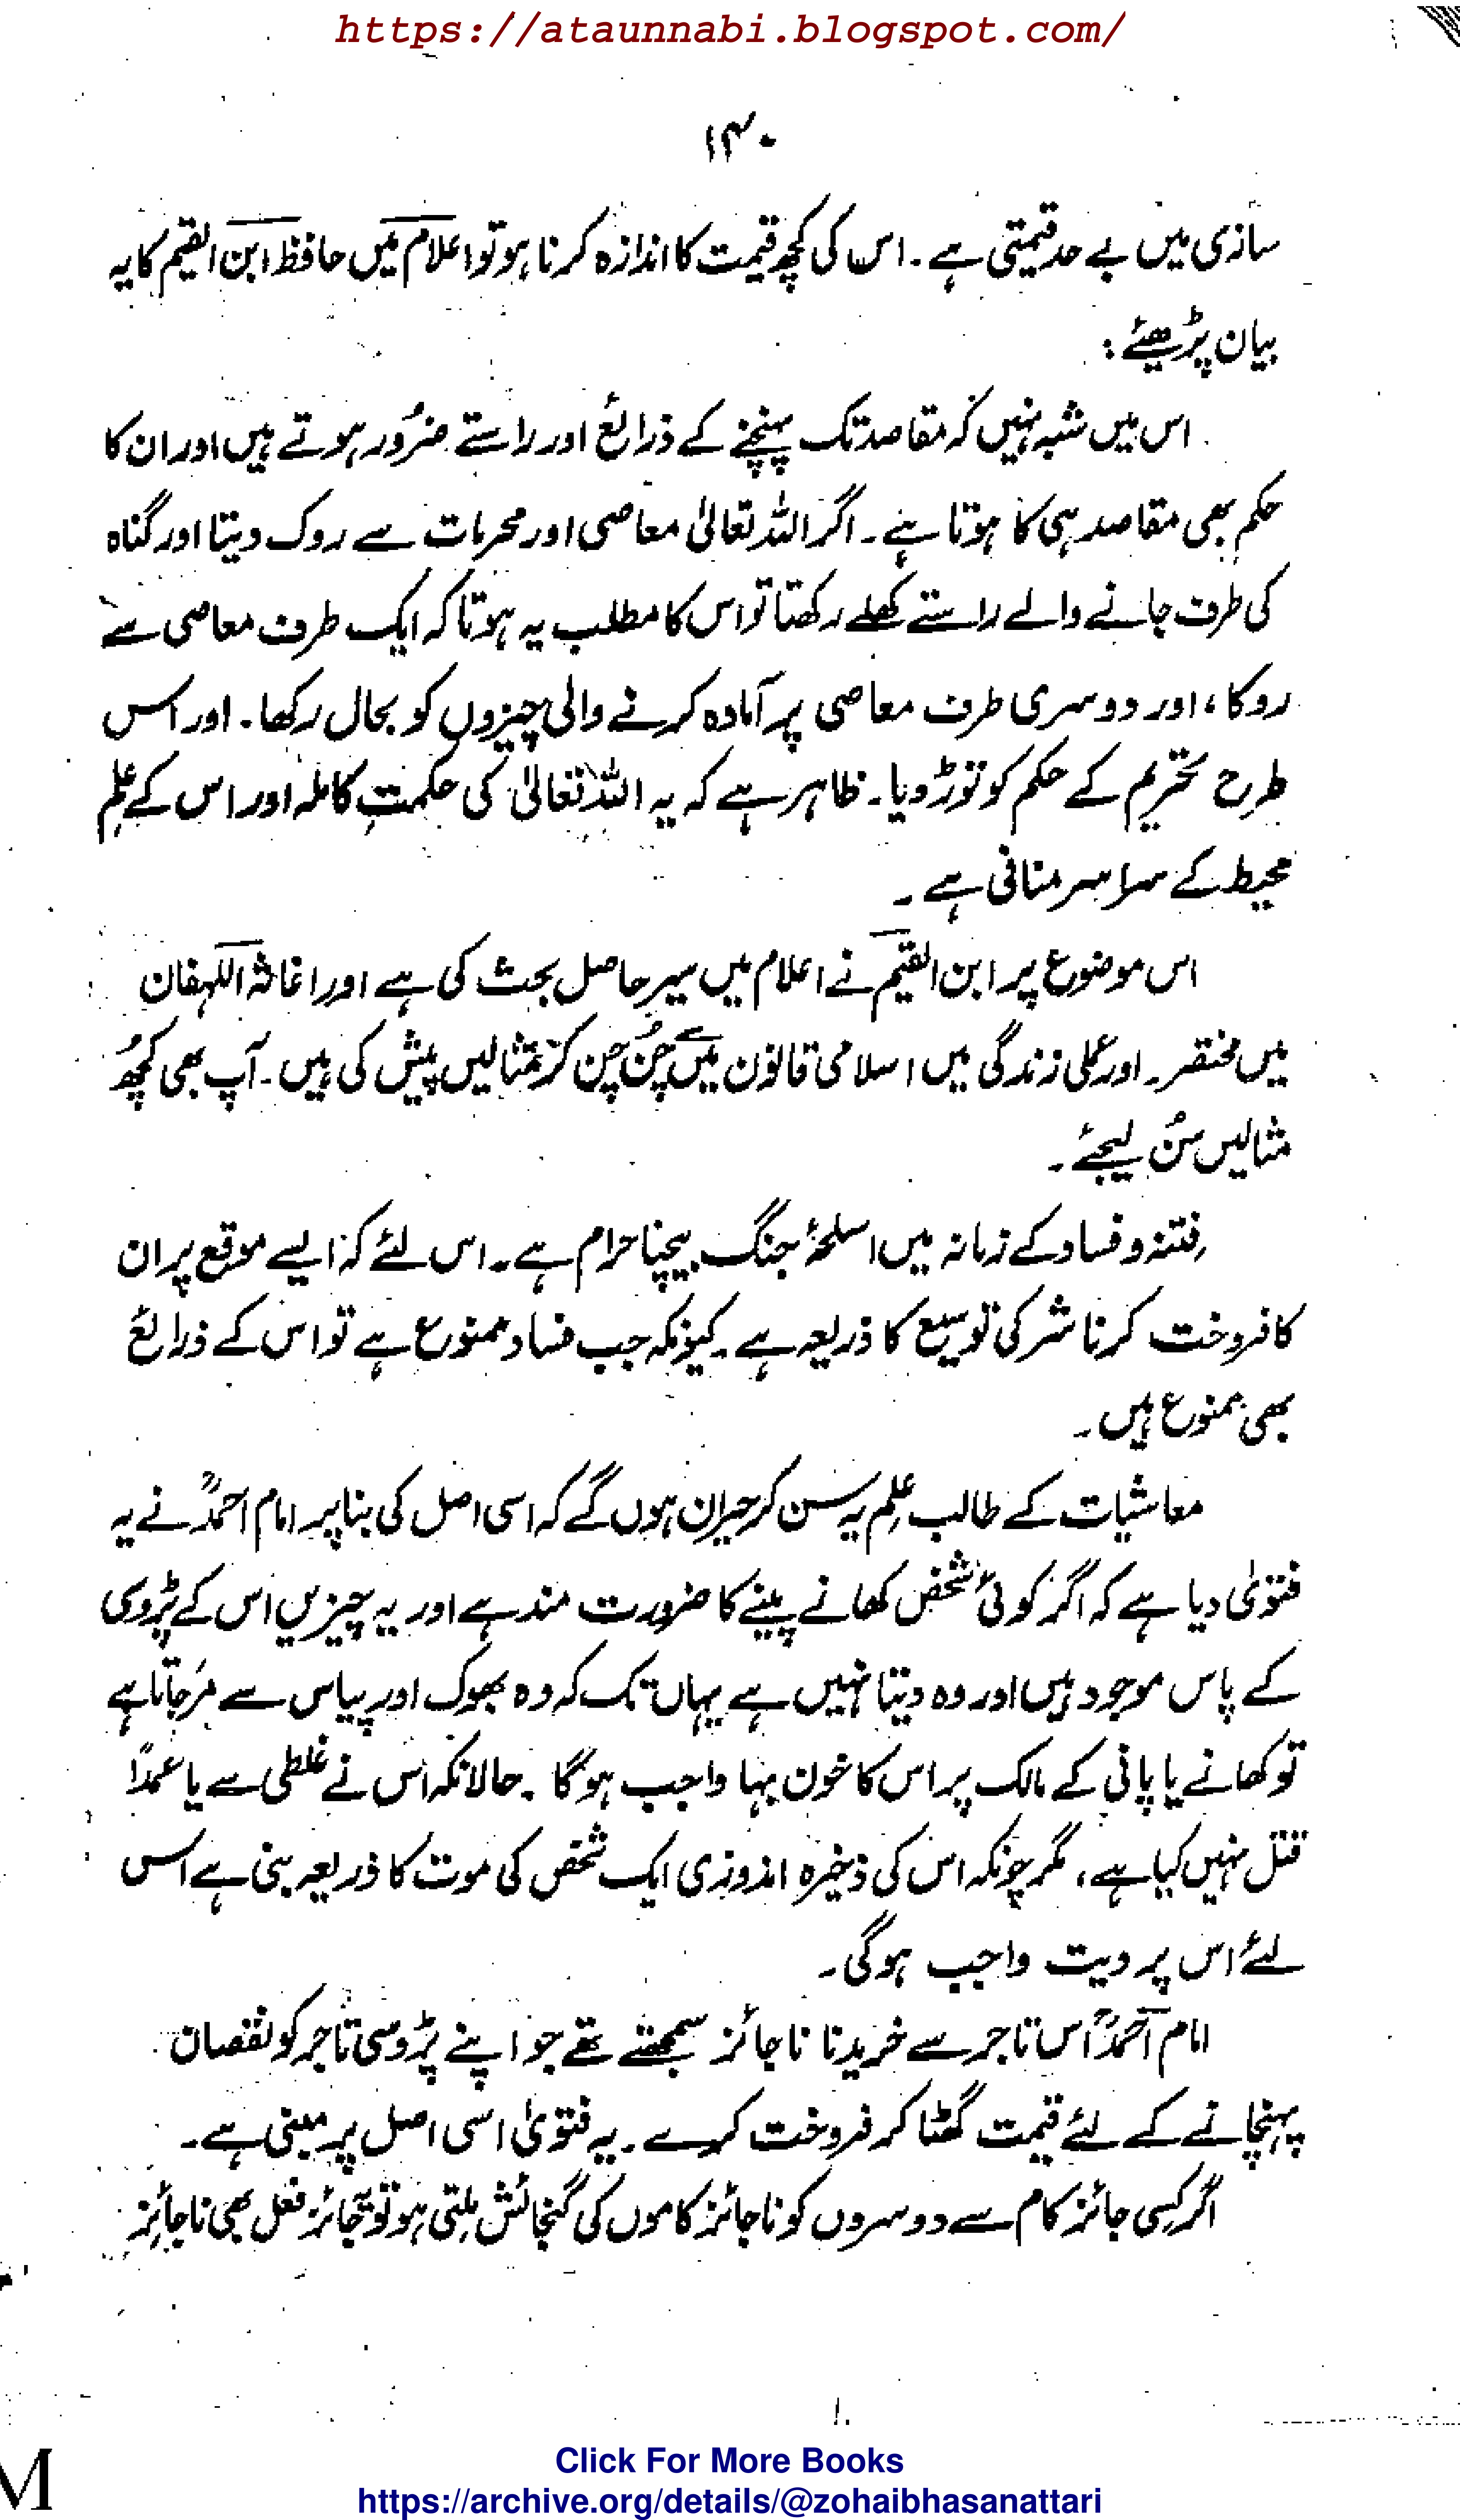 https://ataunnabi.blogspot.com/
۱۴۰
سازی میں بے حد قیمتی ہے۔ اس کی کچھ قیمت کا اندازہ کرنا ہو تو اعلام میں حافظ ابن القیم کا یہ
بیان پڑھیئے :
اس میں شبہ نہیں کہ مقاصد تک پہنچنے کے ذرائع اور راستے ضرُور ہوتے ہیں اور ان کا
حکم بھی مقاصد ہی کا ہوتا ہے۔ اگر اللہ تعالیٰ معاصی اور محرمات سے روک دیتا اور گناہ
کی طرف جانے والے راستے کھلے رکھتا تو اس کا مطلب یہ ہوتا کہ ایک طرف معاصی سے
روکا، اور دوسری طرف معاصی پر آمادہ کرنے والی چیزوں کو بحال رکھا۔ اور اس
طرح تحریم کے حکم کو توڑ دیا۔ ظاہر ہے کہ یہ اللہ تعالیٰ کی حکمتِ کاملہ اور اس کے عِلم
محیط کے سراسر منافی ہے ۔
اس موضوع پر ابن القیم نے اعلام میں سیر حاصل بحث کی ہے اور اغاثۃ اللہفان
میں مختصر۔ اور عملی زندگی میں اسلامی قانون میں سے چُن چُن کر مثالیں پیش کی ہیں۔ آپ بھی کچھُ
مثالیں سُن لیجئے ۔
فِتنہ و فساد کے زمانہ میں اسلحۂ جنگ بیچنا حرام ہے۔ اس لئے کہ ایسے موقع پر ان
کا فروخت کرنا شر کی توسیع کا ذریعہ ہے۔ کیونکہ جب فساد ممنوع ہے تو اس کے ذرائع
بھی ممنوع ہیں۔
معاشیات کے طالب عِلم یہ سن کر حیران ہوں گے کہ اسی اصل کی بنا پر امام احمدؒ نے یہ
فتویٰ دیا ہے کہ اگر کوئی شخص کھانے پینے کا ضرورت مند ہے اور یہ چیزیں اس کے پڑوسی
کے پاس موجود ہیں اور وہ دیتا نہیں ہے یہاں تک کہ وہ بھوک اور پیاس سے مَرجاتا ہے
تو کھانے یا پانی کے مالک پر اس کا خون بہا واجب ہوگا ۔ حالانکہ اس نے غلطی سے یا عمدًا
قتل نہیں کیا ہے، مگر چونکہ اس کی ذخیرہ اندوزی ایک شخص کی موت کا ذریعہ بنی ہے اس
لئے اس پر دیت واجب ہوگی۔
امام احمدؒ اس تاجر سے خریدنا ناجائز سمجھتے تھے جو اپنے پڑوسی تاجر کو نقصان
پہنچانے کے لئے قیمت گھٹا کر فروخت کرے ۔ یہ فتویٰ اسی اصل پر مبنی ہے۔
اگر کسی جائز کام سے دوسروں کو ناجائز کاموں کی گنجائش ملتی ہو تو جائز فعل بھی ناجائز
M
Click For More Books
https://archive.org/details/@zohaibhasanattari